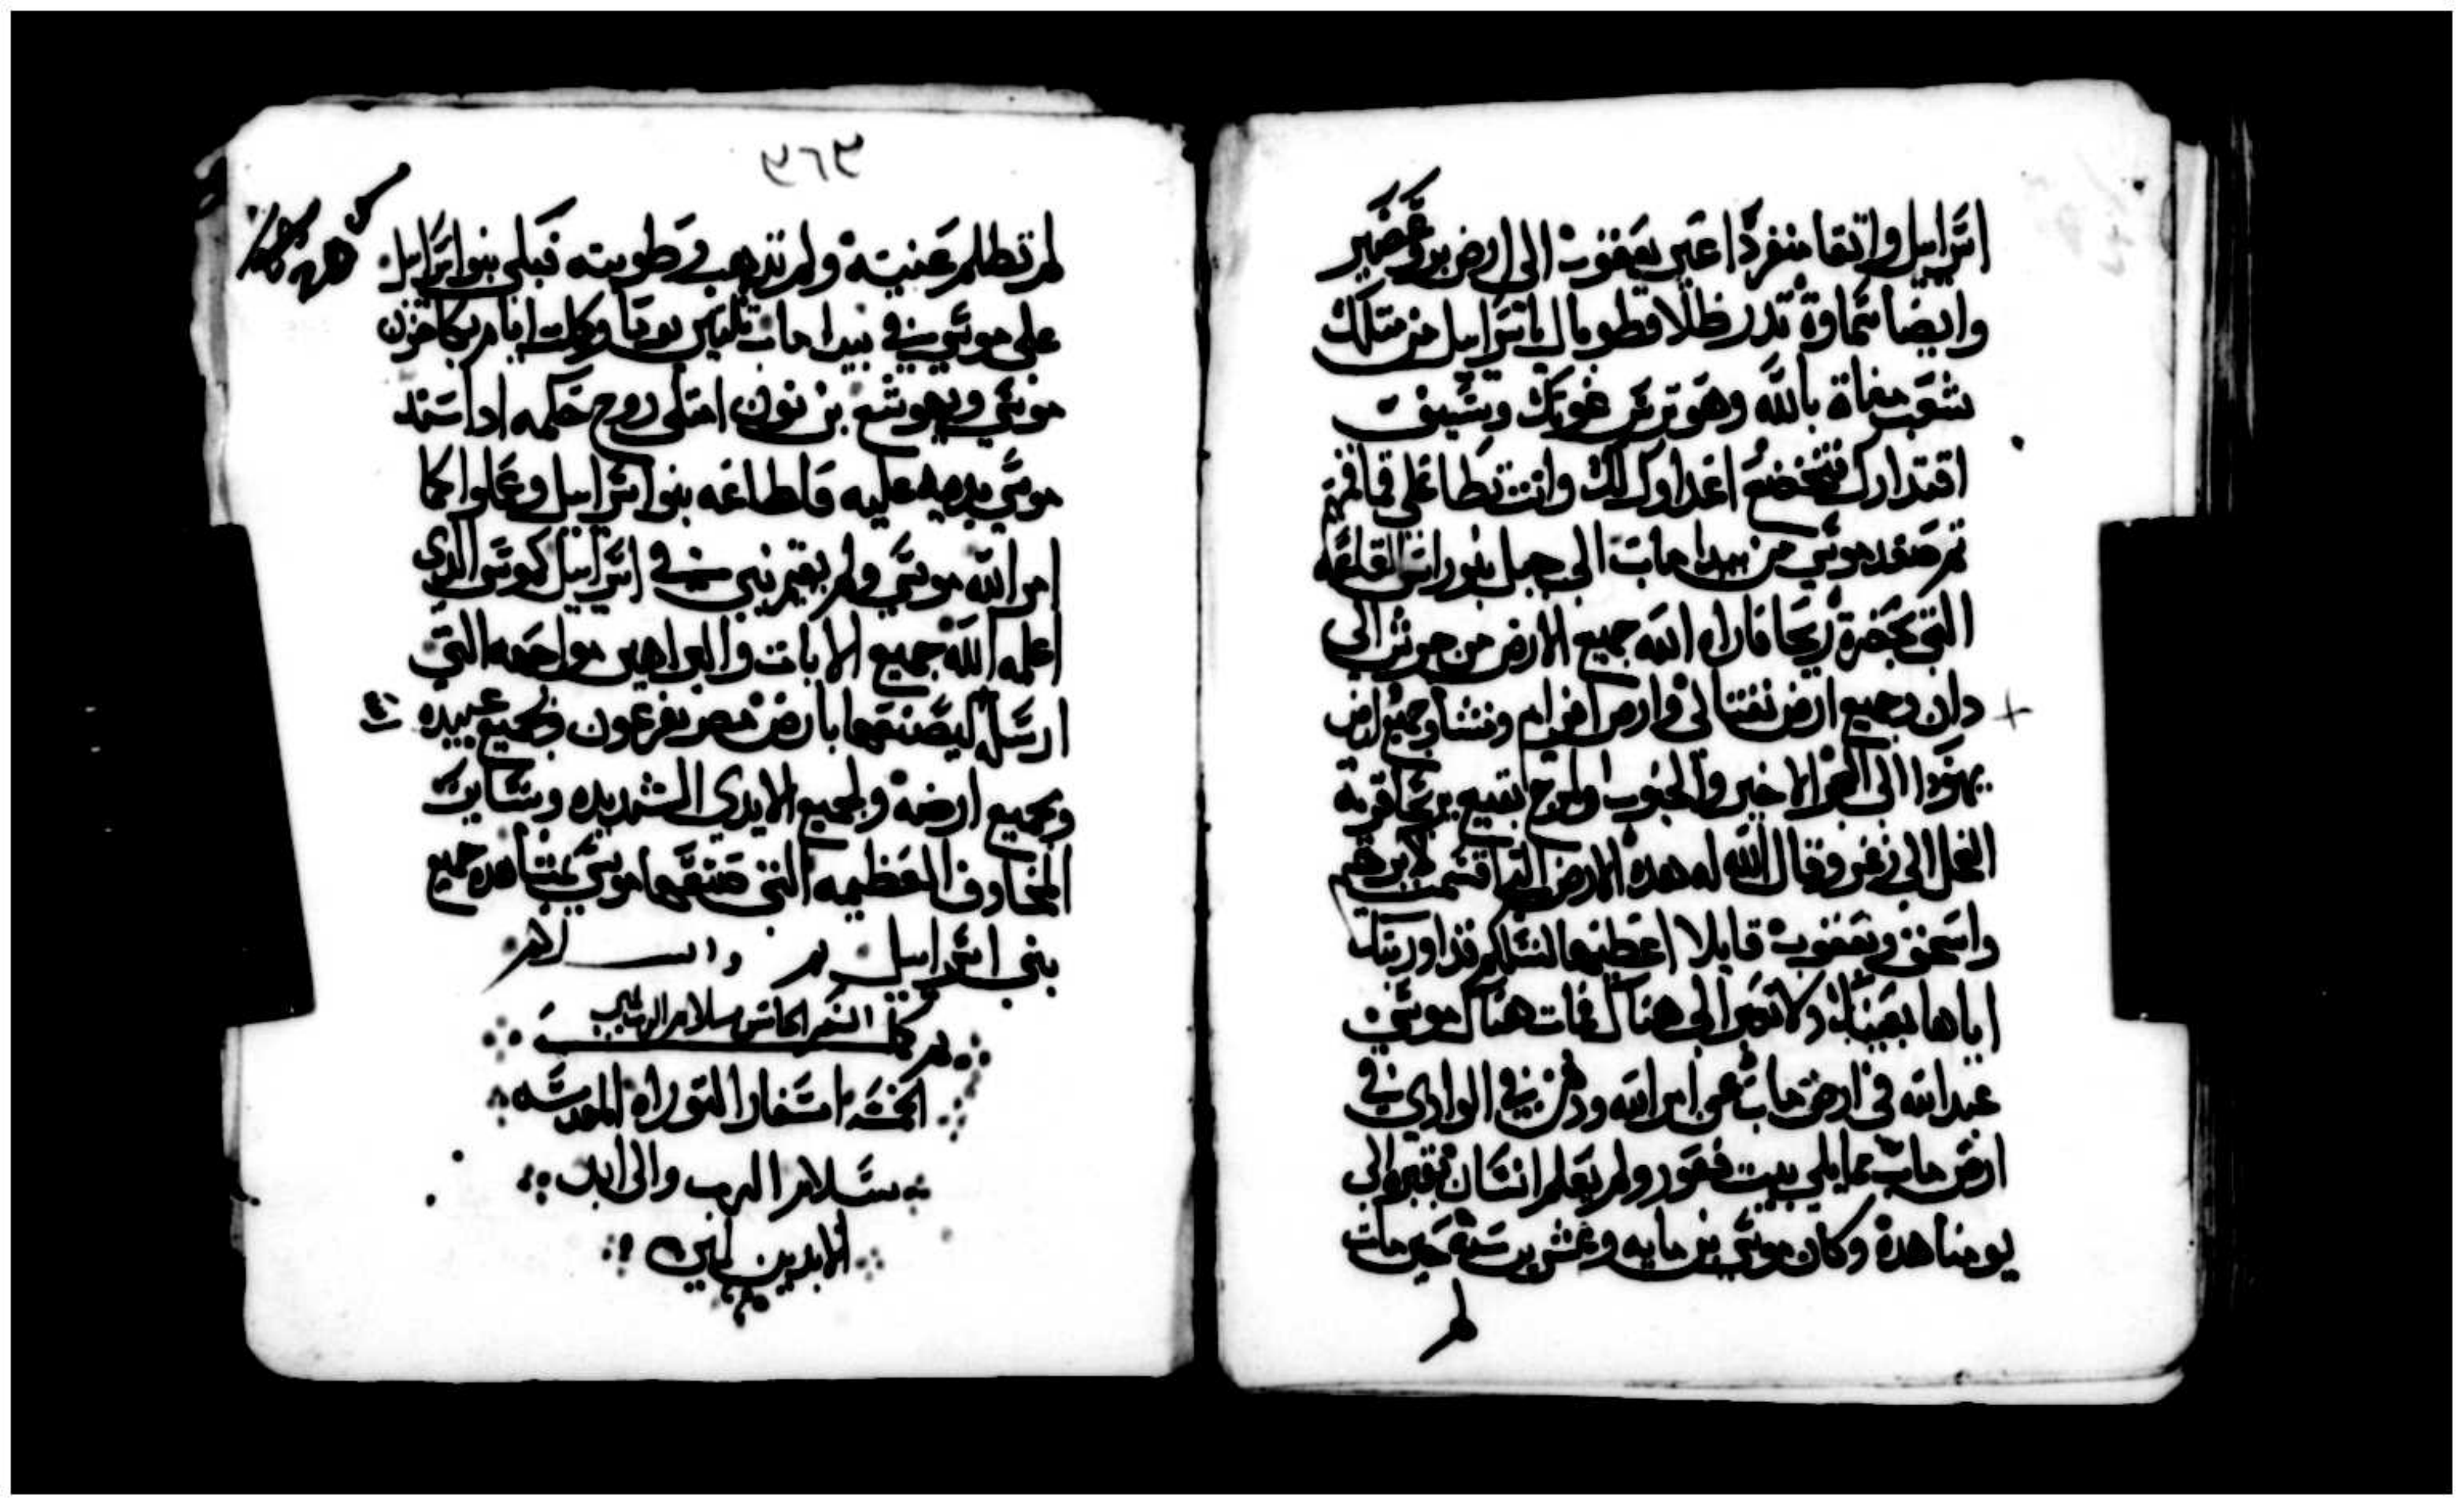 اسراييل واتقا منفردا عين يعقوب الى ارض بر وعصير
وايضا سماوة تدر ظلا فطوباك يا اسراييل من مثلك
شعب مغاة بالله وهو ترس غوثك وسيف
اقتدارك تخضع اعداوك لك وانت تطا على قماقمهم
تم صعد موسي من بيدا ماب الى جبل نبو راس القلعه
التي بحضرة ريحا فاراه الله جميع الارض من جرش الى
دان وجميع ارض نفتالى وارض افرايم ومنشا وجميع ارض
يهودا الى البحر الاخير والجنوب والمرج بقيع ريحا قرية
النخل الى زغر وقال الله له هده الارض التي اقسمت لابرهيم
واسحق ويعقوب قايلا اعطيها لنسلكم قد اوريتك
اياها بعينيك ولا تعبر الى هناك فمات هناك موسي
عبد الله في ارض ماب عن امر الله ودفن في الوادي في
ارض ماب مما يلي بيت فغور ولم يعلم انسان بقبره الى
يومنا هدة وكان موسي بن مايه وعشرين سنة حين مات
٣٦٣
لم تظلم عينيه ولم تذهب رطوبته فبكى بنوا اسراييل
على موسي في بيدا ماب تلتين يوما وكملت ايام بكا حزن
موسي ويهوشع بن نون امتلى روح حكمه اد اسند
موسي يديه عليه فاطاعه بنوا اسراييل وعملوا كما
امر الله موسي ولم يقم نبي في اسراييل كموسي الدي
اعلمه الله جميع الايات والبراهين مواجهه التي
ارسله ليصنعها بارض مصر بفرعون وبجميع عبيده
وبجميع ارضه ولجميع الايدي الشديده وساير
المخاوف العظيمه التي صنعها موسي بمشاهدة جميع
بني اسراييل والسلام
كمل السفر الخامس بسلام الرب
الخمسة اسفار التوراه المقدسه
بسلام الرب والى ابد
الابدين امين